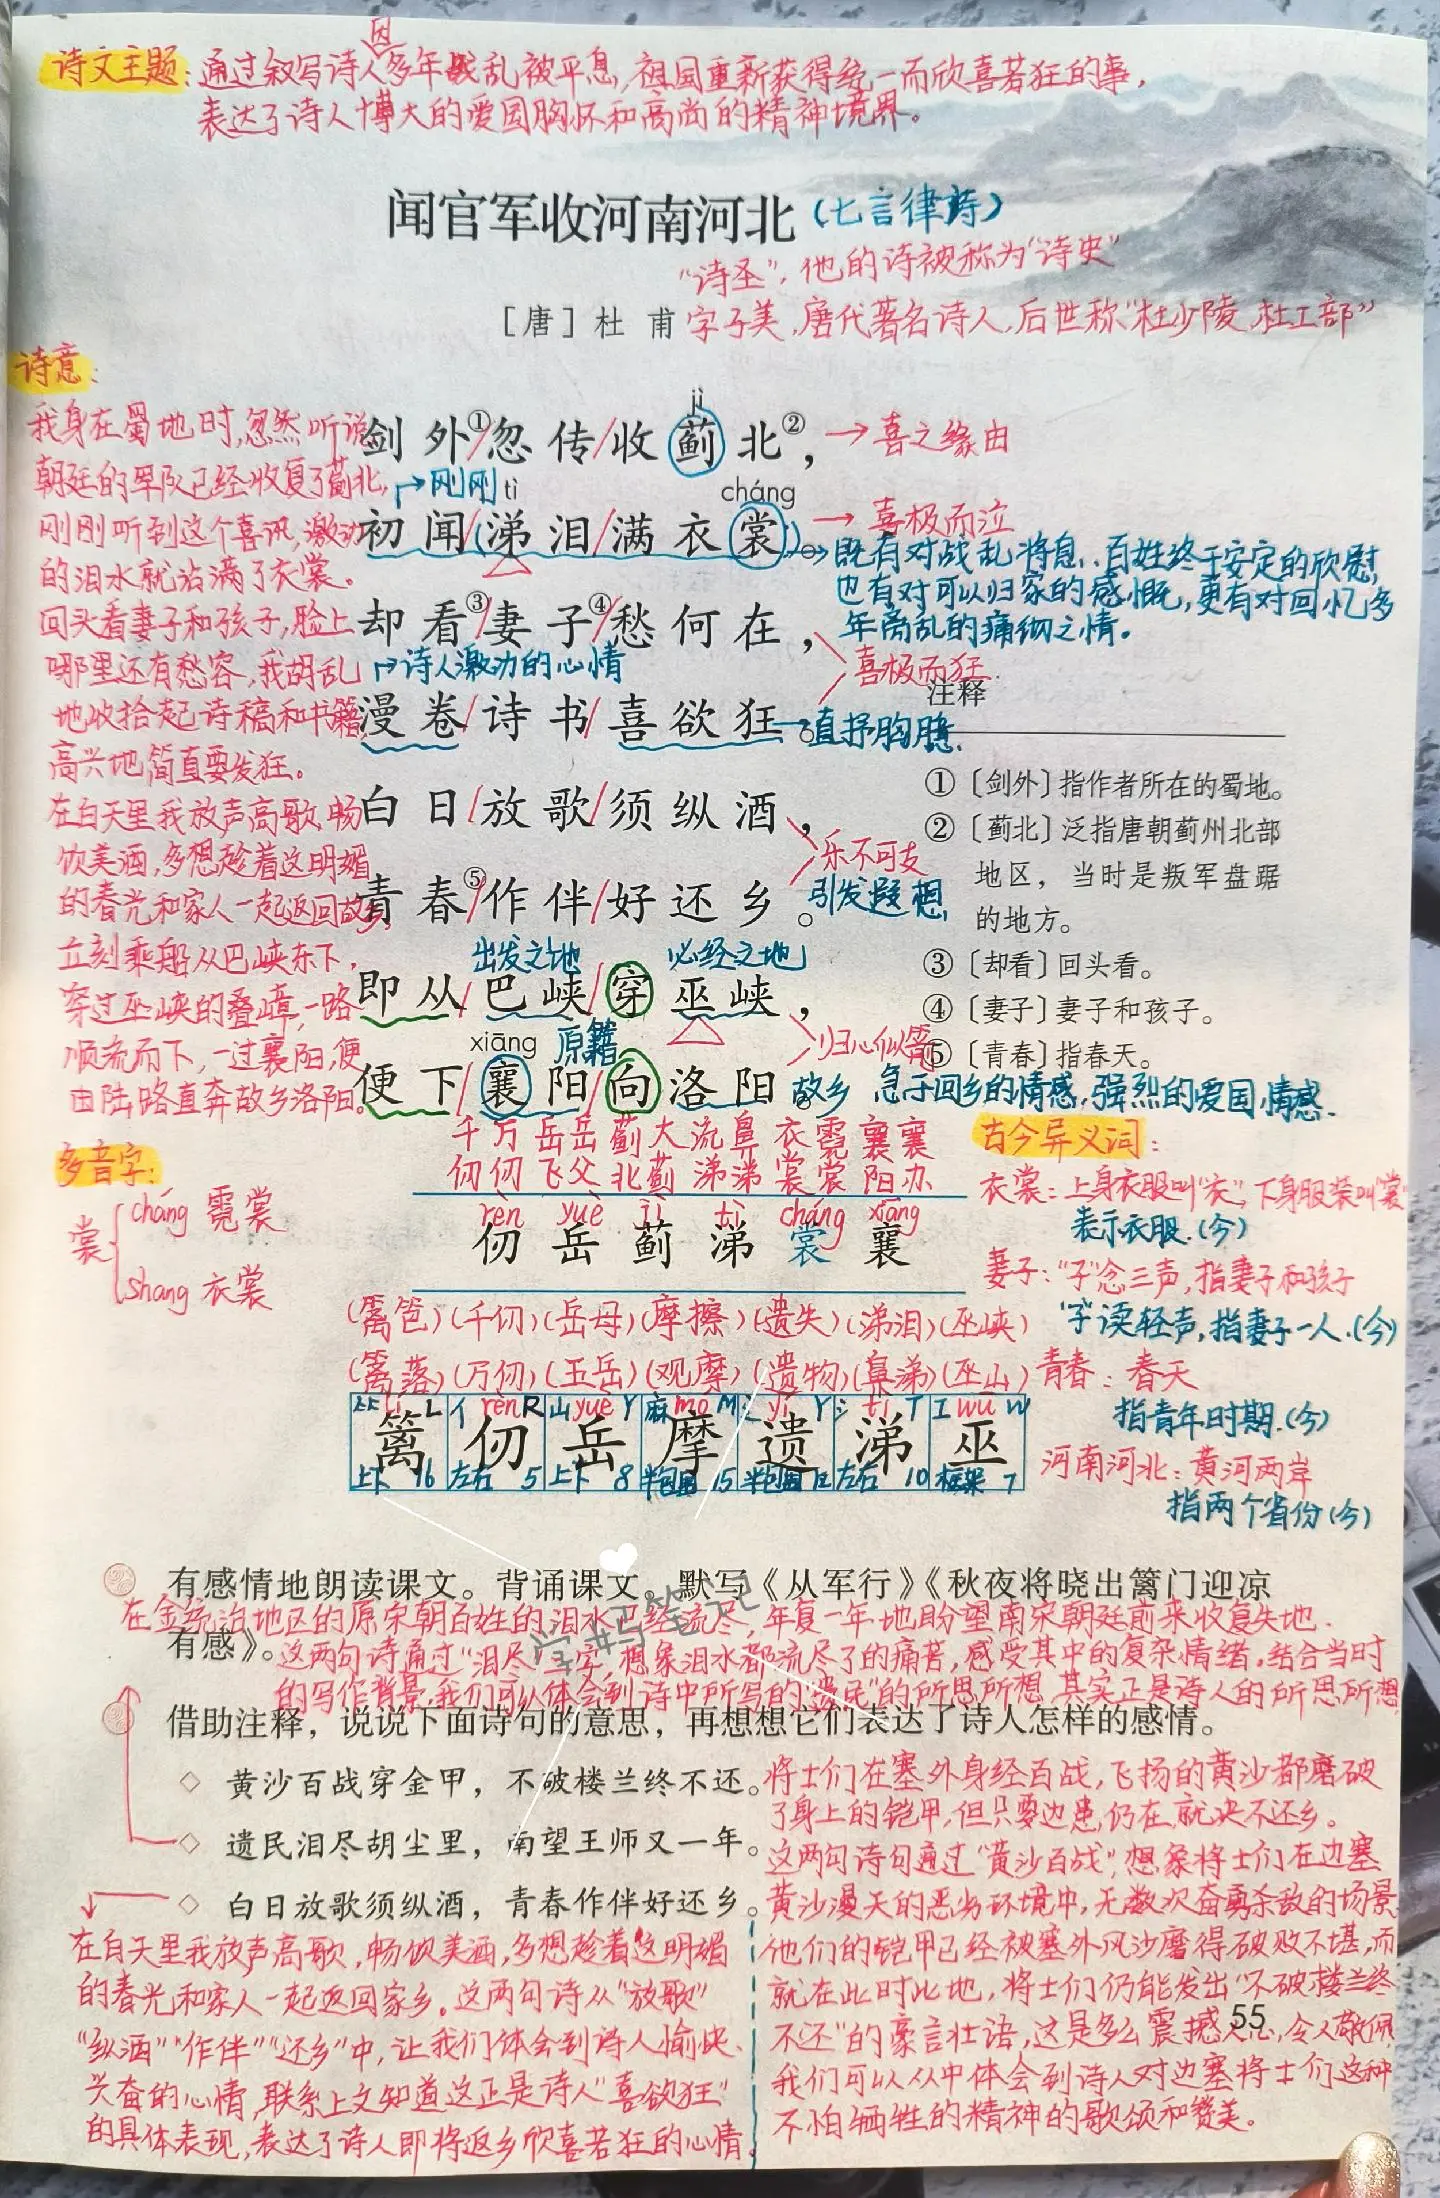 诗文主题:通过叙写诗人因多年战乱被平息,祖国重新获得统一而欣喜若狂的事,
表达了诗人博大的爱国胸怀和高尚的精神境界。
闻官军收河南河北(七言律诗)
"诗圣",他的诗被称为"诗史"
[唐]杜 甫 字子美,唐代著名诗人,后世称"杜少陵,杜工部"
诗意:
我身在蜀地时,忽然听说
朝廷的军队已经收复了蓟北,
刚刚听到这个喜讯,激动
的泪水就沾满了衣裳。
回头看妻子和孩子,脸上
哪里还有愁容,我胡乱
地收拾起诗稿和书籍
高兴地简直要发狂。
在白天里我放声高歌,畅
饮美酒,多想趁着这明媚
的春光和家人一起返回故乡,
立刻乘船从巴峡东下,
穿过巫峡的叠嶂,一路
顺流而下,一过襄阳,便
由陆路直奔故乡洛阳。
jì
剑外①/忽传/收蓟北②, →喜之缘由
→刚刚 tì cháng
初闻(涕泪/满衣裳)。 →喜极而泣
→既有对战乱将息,百姓终于安定的欣慰,
也有对可以归家的感慨,更有对回忆多
年离乱的痛彻之情。
却看③/妻子④/愁何在,
→诗人激动的心情
喜极而狂
漫卷/诗书/喜欲狂。 直抒胸臆.
白日/放歌/须纵酒,
乐不可支
青春⑤/作伴/好还乡。 引发遐想
出发之地 必经之地
即从/巴峡/穿巫峡,
xiāng 原籍 归心似箭
便下/襄阳/向洛阳。 故乡 急于回乡的情感,强烈的爱国情感.
注释
①〔剑外〕指作者所在的蜀地。
②〔蓟北〕泛指唐朝蓟州北部
地区,当时是叛军盘踞
的地方。
③〔却看〕回头看。
④〔妻子〕妻子和孩子。
⑤〔青春〕指春天。
多音字:
裳
cháng 霓裳
shang 衣裳
千 万 岳 岳 蓟 大 流 鼻 衣 霓 襄 襄
仞 仞 飞 父 北 蓟 涕 涕 裳 裳 阳 办
rèn yuè jì tì cháng xiāng
仞 岳 蓟 涕 裳 襄
(篱笆)(千仞)(岳母)(摩擦)(遗失)(涕泪)(巫峡)
(篱落)(万仞)(五岳)(观摩)(遗物)(鼻涕)(巫山)
lí L 亻 rèn R 山 yuè Y 麻 mó M 辶 yí Y 氵 tì T 工 wū W
篱 仞 岳 摩 遗 涕 巫
上下 16 左右 5 上下 8 半包围 15 半包围 12 左右 10 框架 7
古今异义词:
衣裳:上身衣服叫"衣",下身服装叫"裳"
表示衣服.(今)
妻子:"子"念三声,指妻子和孩子
"子"读轻声,指妻子一人.(今)
青春:春天
指青年时期.(今)
河南河北:黄河两岸
指两个省份(今)
有感情地朗读课文。背诵课文。默写《从军行》《秋夜将晓出篱门迎凉
在金统治地区的原宋朝百姓的泪水已经流尽,年复一年地盼望南宋朝廷前来收复失地.
有感》。
这两句诗通过"泪尽"二字,想象泪水都流尽了的痛苦,感受其中的复杂情绪,结合当时
的写作背景,我们可以体会到诗中所写的"遗民"的所思所想,其实正是诗人的所思所想
学妈笔记
借助注释,说说下面诗句的意思,再想想它们表达了诗人怎样的感情。
◇ 黄沙百战穿金甲,不破楼兰终不还。
◇ 遗民泪尽胡尘里,南望王师又一年。
◇ 白日放歌须纵酒,青春作伴好还乡。
将士们在塞外身经百战,飞扬的黄沙都磨破
了身上的铠甲,但只要边患仍在,就决不还乡。
这两句诗句通过"黄沙百战",想象将士们在边塞
黄沙漫天的恶劣环境中,无数次奋勇杀敌的场景,
他们的铠甲已经被塞外风沙磨得破败不堪,而
就在此时此地,将士们仍能发出"不破楼兰终
不还"的豪言壮语,这是多么震撼人心,令人敬佩,
我们可以从中体会到诗人对边塞将士们这种
不怕牺牲的精神的歌颂和赞美。
在白天里我放声高歌,畅饮美酒,多想趁着这明媚
的春光和家人一起返回家乡。这两句诗从"放歌"
"纵酒""作伴""还乡"中,让我们体会到诗人愉快、
兴奋的心情,联系上文知道这正是诗人"喜欲狂"
的具体表现,表达了诗人即将返乡欣喜若狂的心情.
55